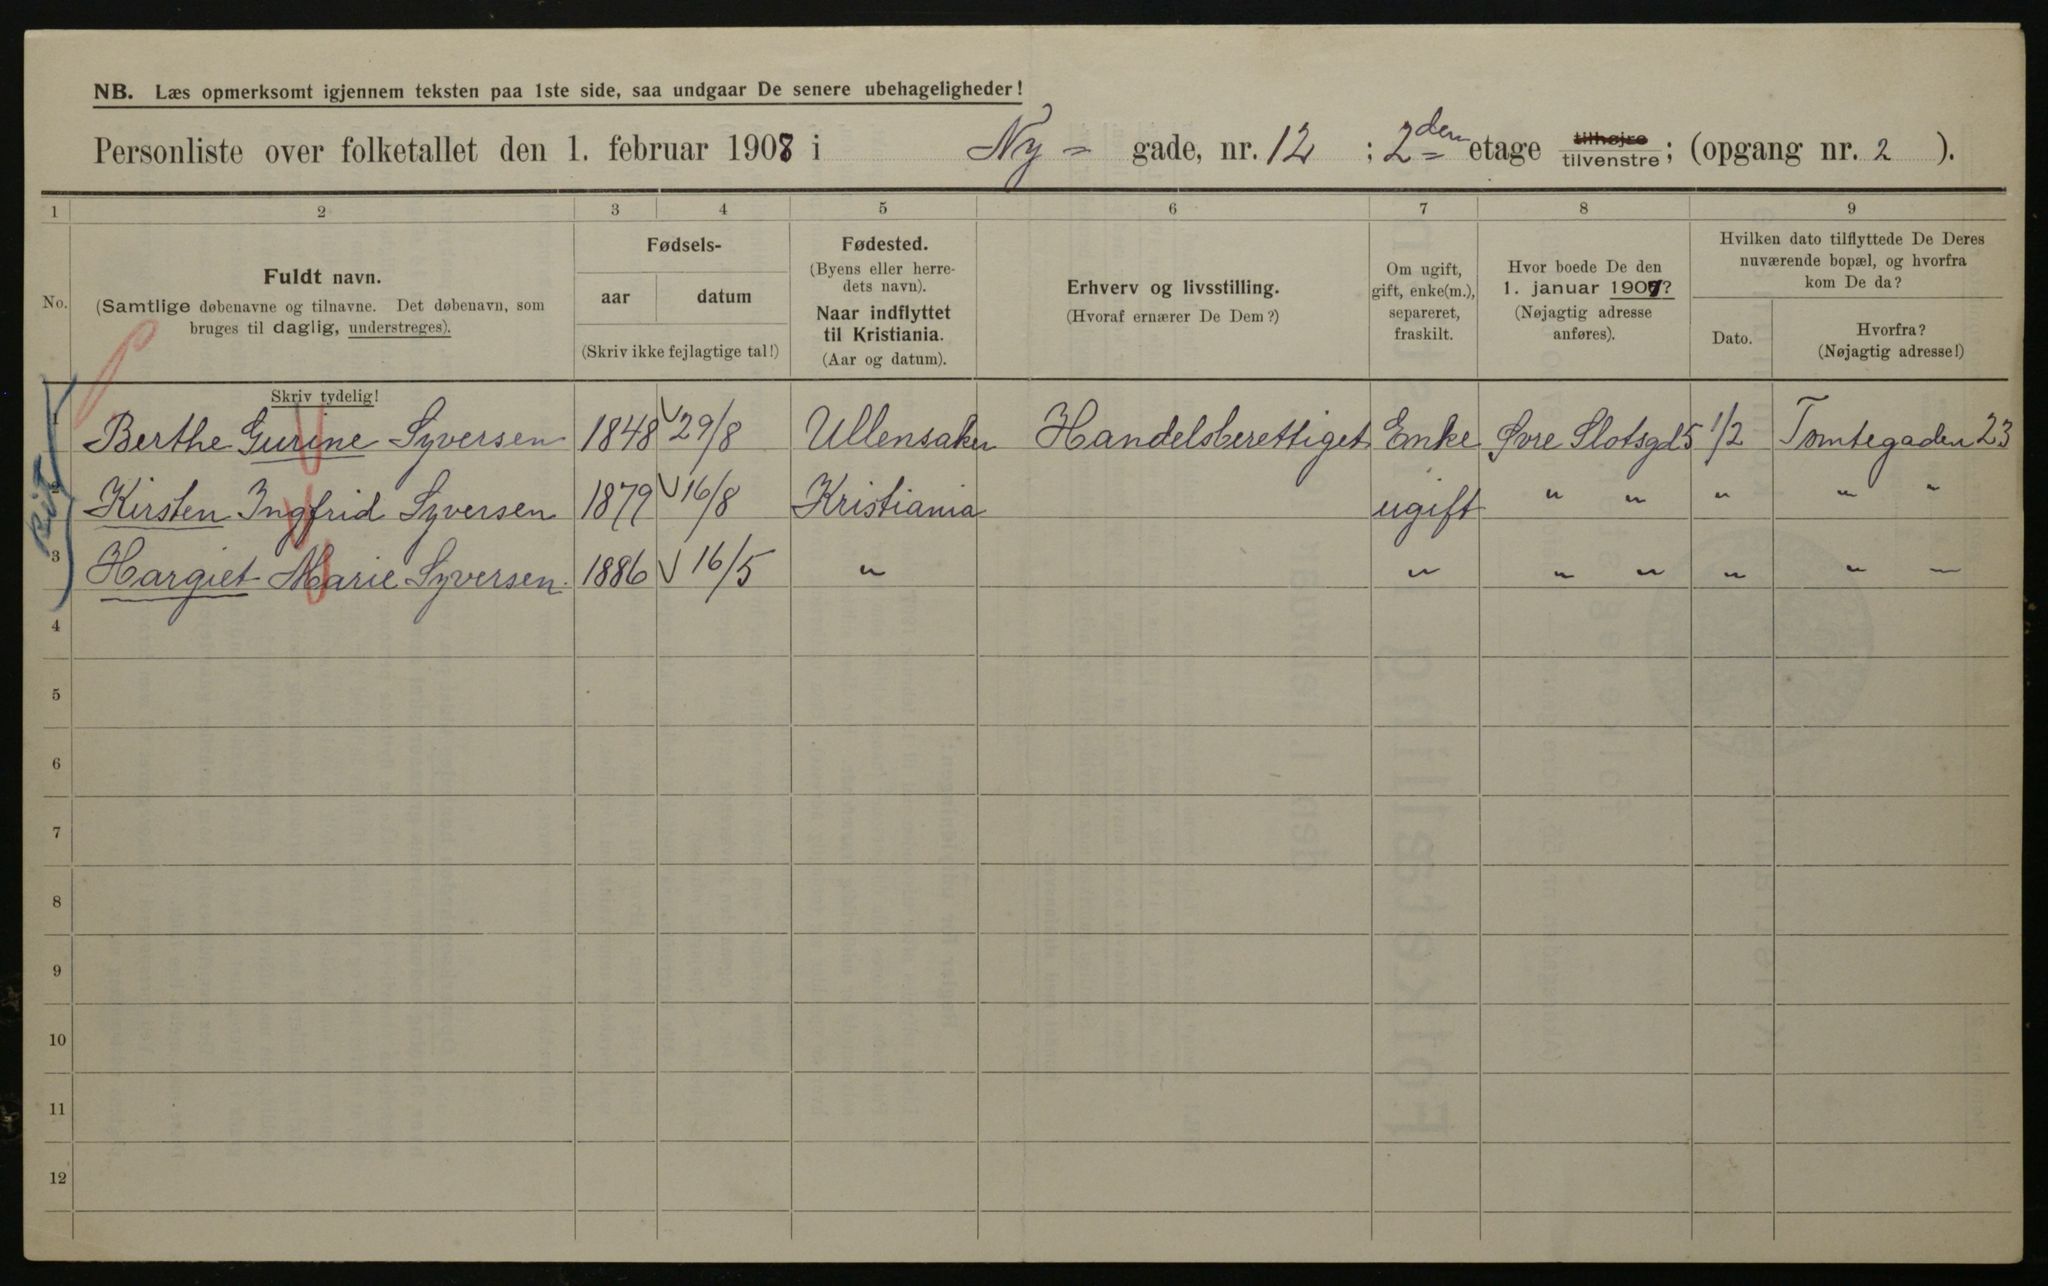 NB. Læs opmerksomt igjennem teksten paa 1ste side, saa undgaar De senere ubehageligheder!
Personliste over folketallet den 1. februar 1908 i Ny- gade, nr. 12 ; 2den etage tilhøjre tilvenstre; (opgang nr. 2 ).
1 2 3 4 5 6 7 8 9
No.
Fuldt navn.
(Samtlige døbenavne og tilnavne. Det døbenavn, som
bruges til daglig, understreges).
Skriv tydelig!
Fødsels-
aar datum
(Skriv ikke fejlagtige tal!)
Fødested.
(Byens eller herre-
dets navn).
Naar indflyttet
til Kristiania.
(Aar og datum).
Erhverv og livsstilling.
(Hvoraf ernærer De Dem?)
Om ugift,
gift, enke(m.),
separeret,
fraskilt.
Hvor boede De den
1. januar 1907?
(Nøjagtig adresse
anføres).
Hvilken dato tilflyttede De Deres
nuværende bopæl, og hvorfra
kom De da?
Dato.
Hvorfra?
(Nøjagtig adresse!)
1 Berthe Gurine Syversen 1848 29/8 Ullensaker Handelsberettiget Enke Øvre Slotsgd 5 1/2 Tomtegaden 23
2 Kirsten Ingfrid Syversen 1879 16/8 Kristiania ugift " " " " "
3 Hargiet Marie Syversen. 1886 16/5 " " " " " " —
4
5
6
7
8
9
10
11
12